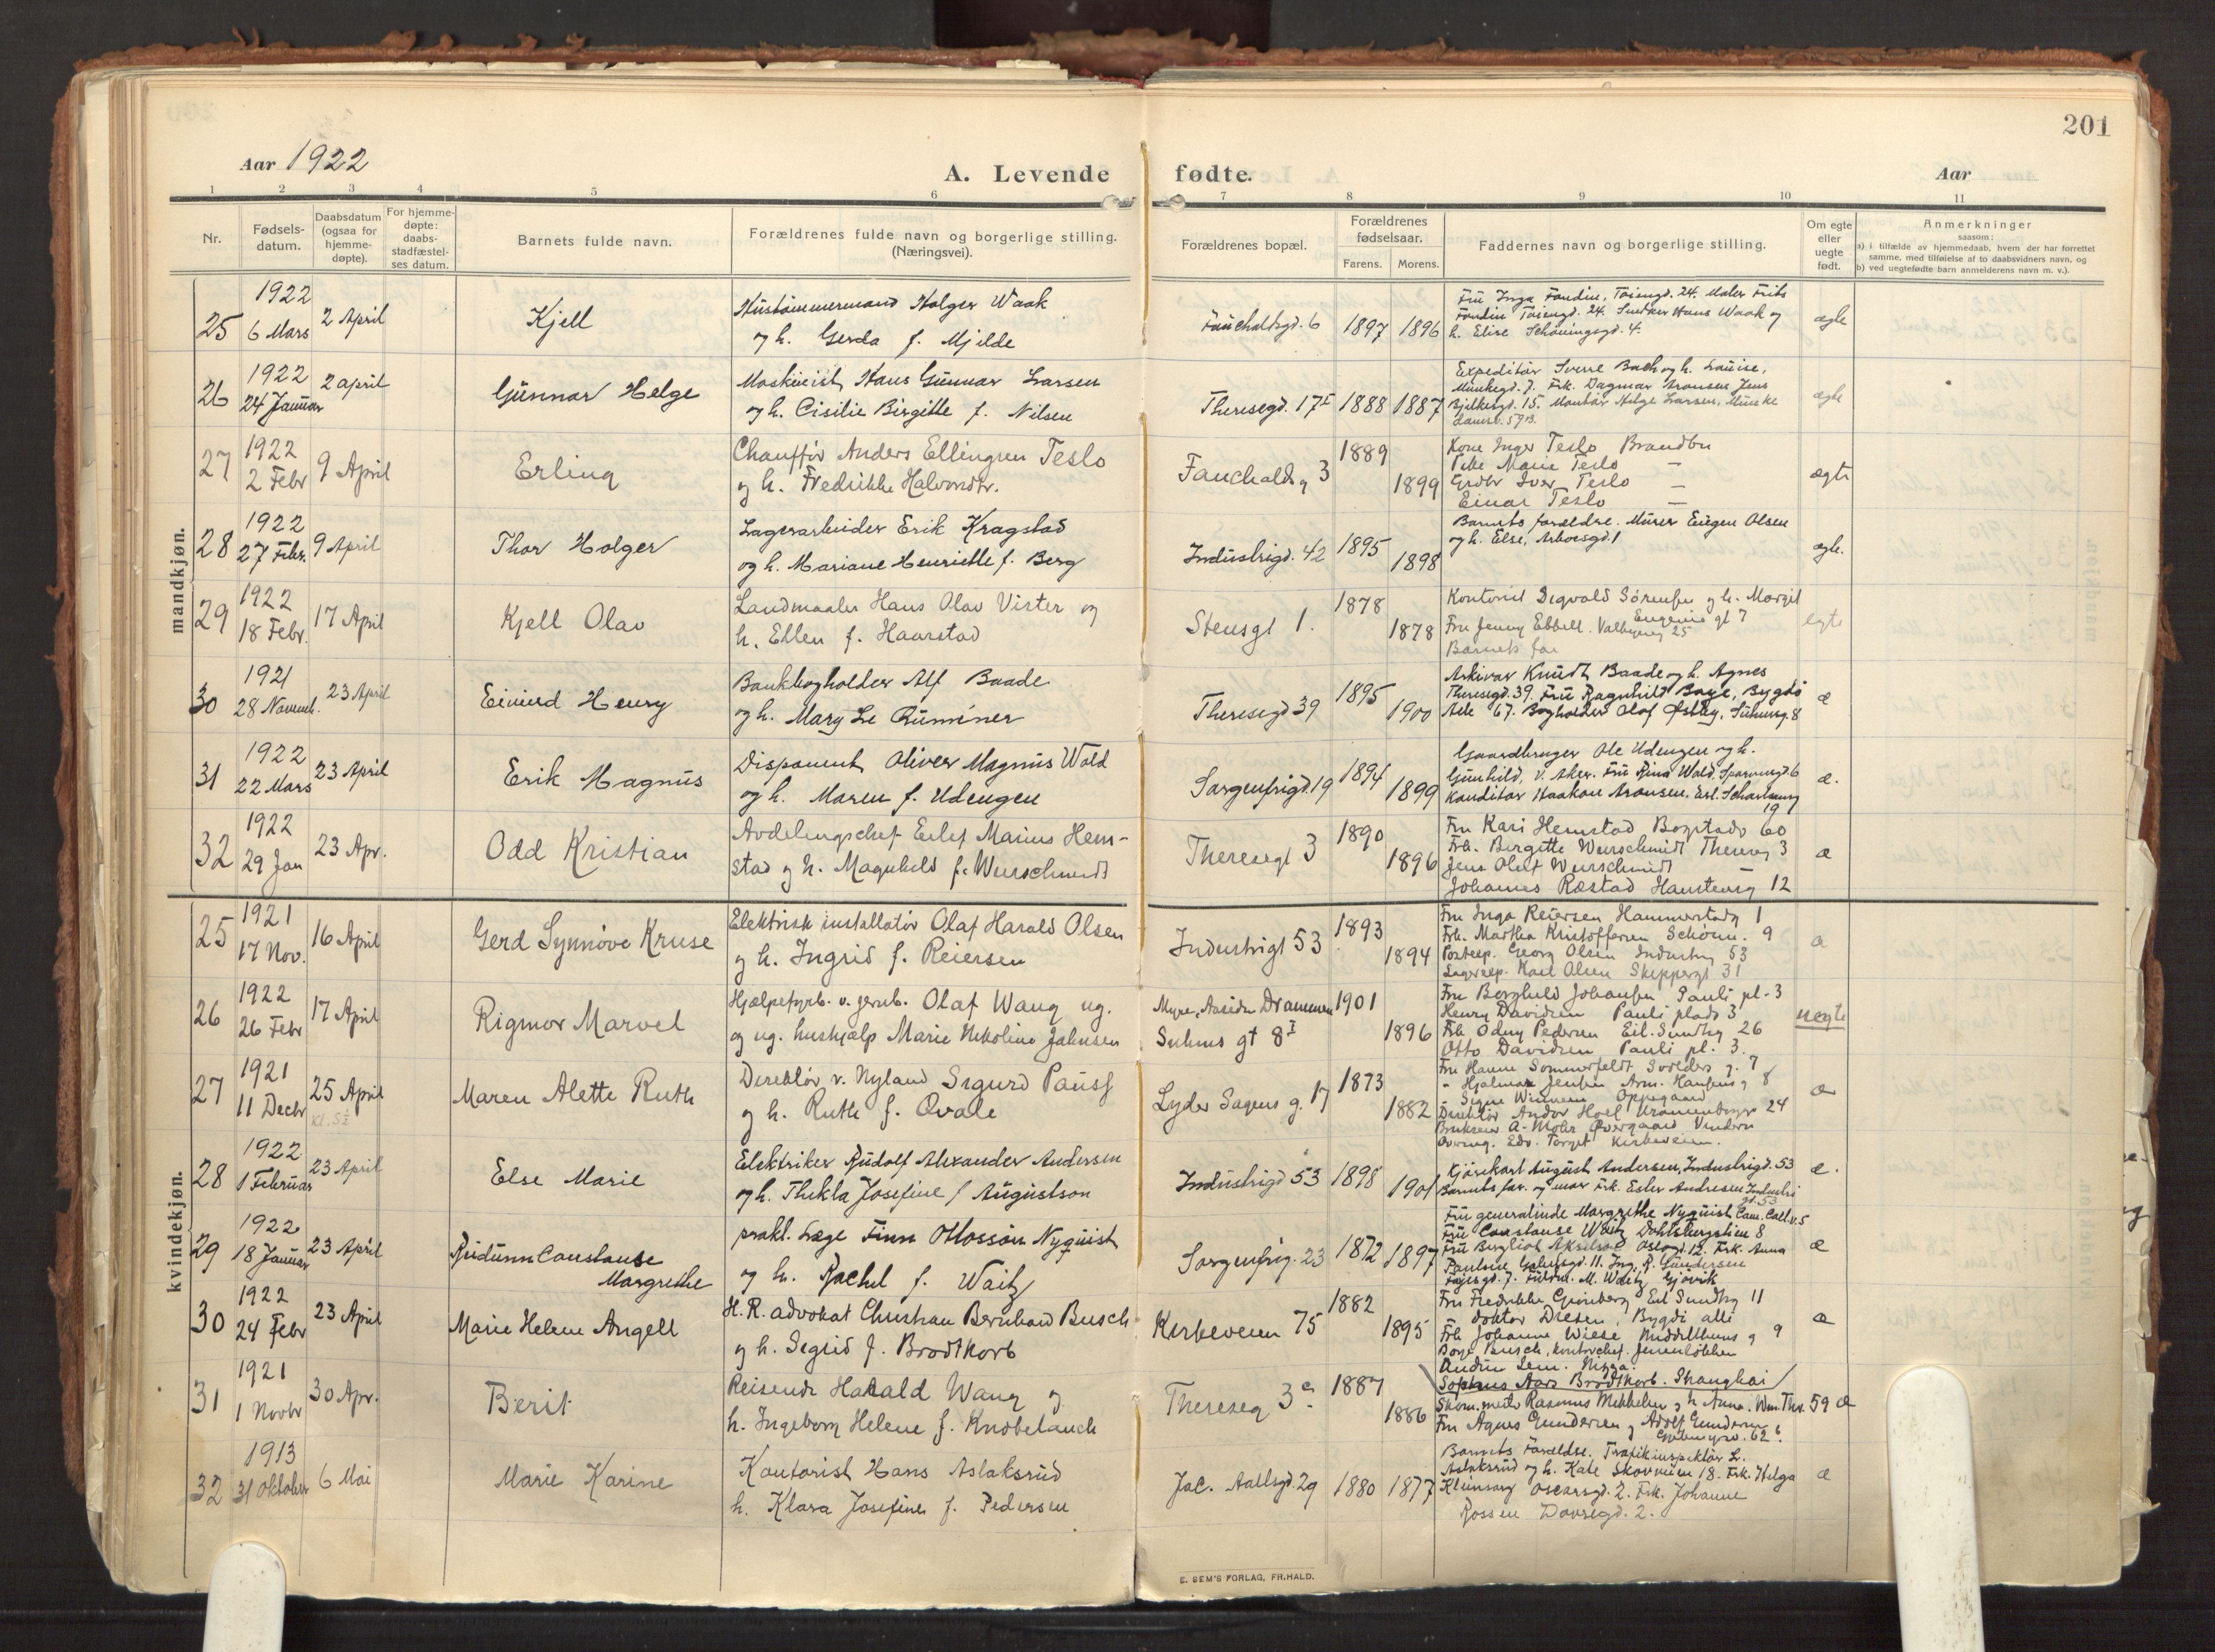 201
Aar 1922
A. Levende fødte.
Aar
1 2 3 4 5 6 7 8 9 10 11
Nr.
Fødsels-
datum.
Daabsdatum
(ogsaa for
hjemme-
døpte).
For hjemme-
døpte:
daabs-
stadfæstel-
ses datum.
Barnets fulde navn.
Forældrenes fulde navn og borgerlige stilling.
(Næringsvei).
Forældrenes bopæl.
Forældrenes
fødselsaar.
Farens. Morens.
Faddernes navn og borgerlige stilling.
Om egte
eller
uegte
født.
Anmerkninger
saasom:
a) i tilfælde av hjemmedaab, hvem der har forrettet
samme, med tilføielse af to daabsvidners navn, og
b) ved uegtefødte barn anmelderens navn m. v.).
mandkjøn.
25 1922 6 Mars 2 April Kjell
Hustømmermand Holger Waak
og h. Gerda f. Mjelde
Fauchaldsgd. 6 1897 1896
Fru Inga Fondin, Tøiengd. 24. Maler Frits
Fondin Tøiengd. 24. Snekker Hans Waak og
h. Elise Schøningsgd. 4.
egte
26 1922 24 Januar 2 april Gunnar Helge
Maskinist Hans Gunnar Larsen
og h. Cisilie Birgitte f. Nilsen
Theresegd. 17 I 1888 1887
Expeditør Sverre Bach og h. Louise,
Munkegd. 7. Frk. Dagmar Aronsen Jens
Bjelkesgd. 15. Montør Helge Larsen, Munke
egte
27 1922 2 Febr 9 April Erling
Chauffør Anders Ellingsen Teslo
og h. Fredrikke Halvorsdtr.
Fauchalds g 3 1889 1899
Kone Inger Teslo Brandbu
Pike Marie Teslo —
Grdbr Iver Teslo —
Einar Teslo —
egte
28 1922 27 Febr. 9 April Thor Holger
Lagerarbeider Erik Kragstad
og h. Mariane Henriette f. Berg
Industrigd. 42 1895 1898
Barnets forældre. Murer Eugen Olsen
og h. Else, Arboesgd. 1
egte.
29 1922 18 Febr. 17 April Kjell Olav
Landmaaler Hans Olav Vister og
h. Ellen f. Haarstad
Stensgt 1. 1878 1878
Kontorist Sigvald Sørensen og h. Margit
Eugenie gt 7
Fru Jenny Ebbell. Valkyrieg 25
Barnets far
egte
30 1921 28 Novemb. 23 April Eivind Henry
Bankbogholder Alf Baade
og h. Mary Le Ruminer
Theresegd 39 1895 1900
Arkivar Knudt Baade og h. Agnes
Theresegd. 39. Fru Ragnhild Baye, Bygdø
Alle 67. Bogholder Olaf Østby, Suhmsg. 8
æ
31 1922 22 Mars 23 April Erik Magnus
Disponent Oliver Magnus Wold
og h. Maren f. Udengen
Sorgenfrigd. 19 1894 1899
Gaardbruger Ole Udengen og h.
Gunhild, V. Aker. Fru Rina Wold. Sporveisgd. 6
Konditor Haakon Aronsen.
19
æ.
32 1922 29 Jan 23 Apr. Odd Kristian
Avdelingschef Eilef Marius Hem-
stad og h. Magnhild f. Wurschmidt
Theresegt 3 1890 1896
Fru Kari Hemstad Bogstadv 60
Frk. Birgitte Wurschmidt Thereseg 3
Jens Olaf Wurschmidt
Johannes Ræstad Hansteensg 12
æ
kvindekjøn.
25 1921 17 Nov. 16 April Gerd Synnøve Kruse
Elektrisk installatør Olaf Harald Olsen
og h. Ingrid f. Reiersen
Industrigt 53 1893 1894
Fru Inga Reiersen Hammerstadg 1
Frk. Martha Kristoffersen Schønn. 9
Postexp. Georg Olsen Industrig 53
Lagerexp. Karl Olsen Skippergt 31
æ
26 1922 26 Febr 17 April Rigmor Marvel
Hjælpefyrb. v. jernb. Olaf Wang ug.
og ug. hushjælp Marie Nikoline Jahnsen
Myre, Aasiden Drammen
Suhms gt 8 I 1901 1896
Fru Borghild Johansen Pauli pl. 3
Henry Davidsen Pauli plads 3
Frk Odny Pedersen Eil. Sundtsg 26
Otto Davidsen Pauli pl. 3.
uegte
27 1921 11 Decbr 25 April kl. 5½ Maren Alette Ruth
Direktør v. Nyland Sigurd Pauss
og h. Ruth f. Qvale
Lyder Sagens g. 17 1873 1882
Fru Hanna Sommerfeldt Svolders g. 7
" Hjalmar Jensen Arm. Hansens g 8
" Signe Winnem Oppegaard
Direktør Andor Hoel Uranienborgv 24
Brukseier A. Mohr Øvergaard Vindern
Overing. Edv. Torget Kirkeveien.
æ
28 1922 1 Februar 23 April Else Marie
Elektriker Rudolf Alexander Andersen
og h. Thekla Josefine f Augustson
Industrigd 53 1898 1901
Kjørekarl August Andersen, Industrigd. 53
Barnets far. og mor Frk. Ester Andresen Industri
gd. 53
æ.
29 1922 18 Januar 23 April Ridunn Constanse
Margrethe
prakt. Læge Finn Ottosson Nyquist
og h. Rachel f. Waitz
Sorgenfrig. 23 1872 1897
Fru generalinde Margrethe Nyquist Cam. Coll. v. 5
Fru Constanse Waitz Dahlsbergstien 8
Fru Bergliot Akselsen Oslogd. 12. Frk. Anna
Pauline Gabelsgd. 11. Ing. R. Gundersen
M. Waitz Gjøvik
æ
30 1922 24 Febr 23 April Marie Helene Angell
H.R. advokat Christian Bernhard Busch
og h. Sigrid f. Brodtkorb
Kirkeveien 75 1882 1895
Fru Fredrikke Grønberg Eil Sundtsg 11
" doktor Diesen, Bygdø allé
Frk Johanne Wiese Middelthuns g 9
Borge Busch, kontorchef. Jensenløkken
Nizza.
Sophus Aars Brodtkorb. Shanghai
æ
31 1921 1 Novbr 30 Apr. Berit
Reisende Harald Wang og
h. Ingeborg Helene f. Knobelauch
Thereseg 3 c 1887 1886
Skom.mester Rasmus Mikkelsen og h Anna. Wm. Thr. 59
Fru Agnes Gundersen og Adolf Gundersen
æ
32 1913 31 Oktober 6 Mai Marie Karine
Kontorist Hans Aslaksrud
h. Klara Josefine f. Pedersen
Jac. Aallsgd. 29 1880 1877
Barnets Forældre. Trafikinspektør L.
Aslaksrud og h. Kate Skovveien 18. Frk. Helga
Oscarsgd. 2. Frk. Johanne
Rossen Dovregd. 2.
æ
E. SEM'S FORLAG, FR.HALD.